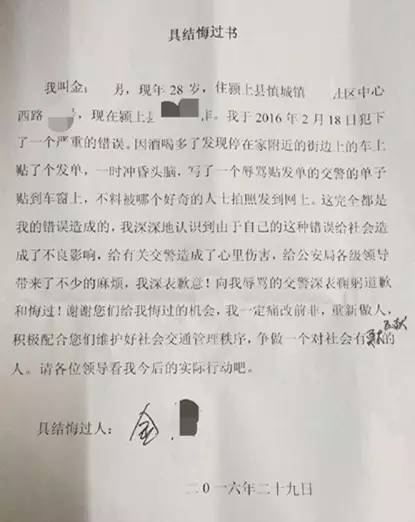 具结悔过书
我叫金 男，现年 28 岁，住颍上县慎城镇 社区中心
西路 号，现在颍上县 非。我于 2016 年 2 月 18 日犯下
了一个严重的错误。因酒喝多了发现停在家附近的街边上的车上
贴了个发单，一时冲昏头脑，写了一个辱骂贴发单的交警的单子
贴到车窗上，不料被哪个好奇的人士拍照发到网上。这完全都是
我的错误造成的，我深深地认识到由于自己的这种错误给社会造
成了不良影响，给有关交警造成了心里伤害，给公安局各级领导
带来了不少的麻烦，我深表歉意！向我辱骂的交警深表鞠躬道歉
和悔过！谢谢您们给我悔过的机会，我一定痛改前非，重新做人，
积极配合您们维护好社会交通管理秩序，争做一个对社会有贡献的
人。请各位领导看我今后的实际行动吧。
具结悔过人：金
二〇一六年二十九日